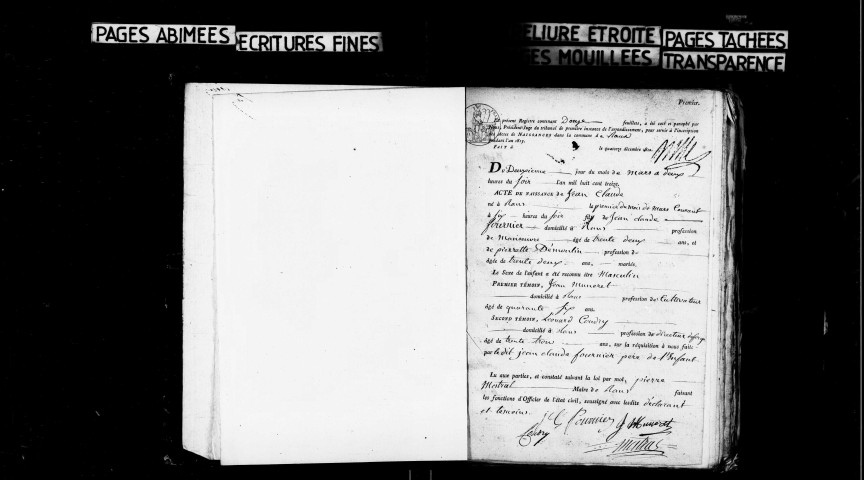 PAGES ABIMEES
ECRITURES FINES
ELIURE ÉTROITE
PAGES TACHÉES
ES MOUILLÉES
TRANSPARENCE
Premier.
Le présent Registre contenant Douze feuillets, a été coté et paraphé par
Nous, Président-Juge du tribunal de première instance de l'arrondissement, pour servir à l'inscription
des actes de NAISSANCES dans la commune d
pendant l'an 1813.
FAIT à le quatorze décembre 1812.
Du Deuxième jour du mois de mars à deux
heures du soir l'an mil huit cent treize.
ACTE DE NAISSANCE de Jean Claude
né à Rans le premier du mois de Mars Courant
à six heures du soir fils de Jean claude
fournier domicilié à Rans profession
de manœuvre âgé de trente deux ans, et
de pierrette Démontin profession de
âgée de trente deux ans, mariés.
Le Sexe de l'enfant a été reconnu être Masculin
PREMIER TÉMOIN, Jean
domicilié à Rans profession de Cultivateur
âgé de quarante six ans.
SECOND TÉMOIN, Léonard Coudry
domicilié à Rans profession de directeur
âgé de trente ans, sur la réquisition à nous faite
par ledit jean claude fournier père de l'Enfant
Lu aux parties, et constaté suivant la loi par moi, pierre
Maire de Rans faisant
les fonctions d'Officier de l'état civil, soussigné avec lesdits déclarant
et témoins.